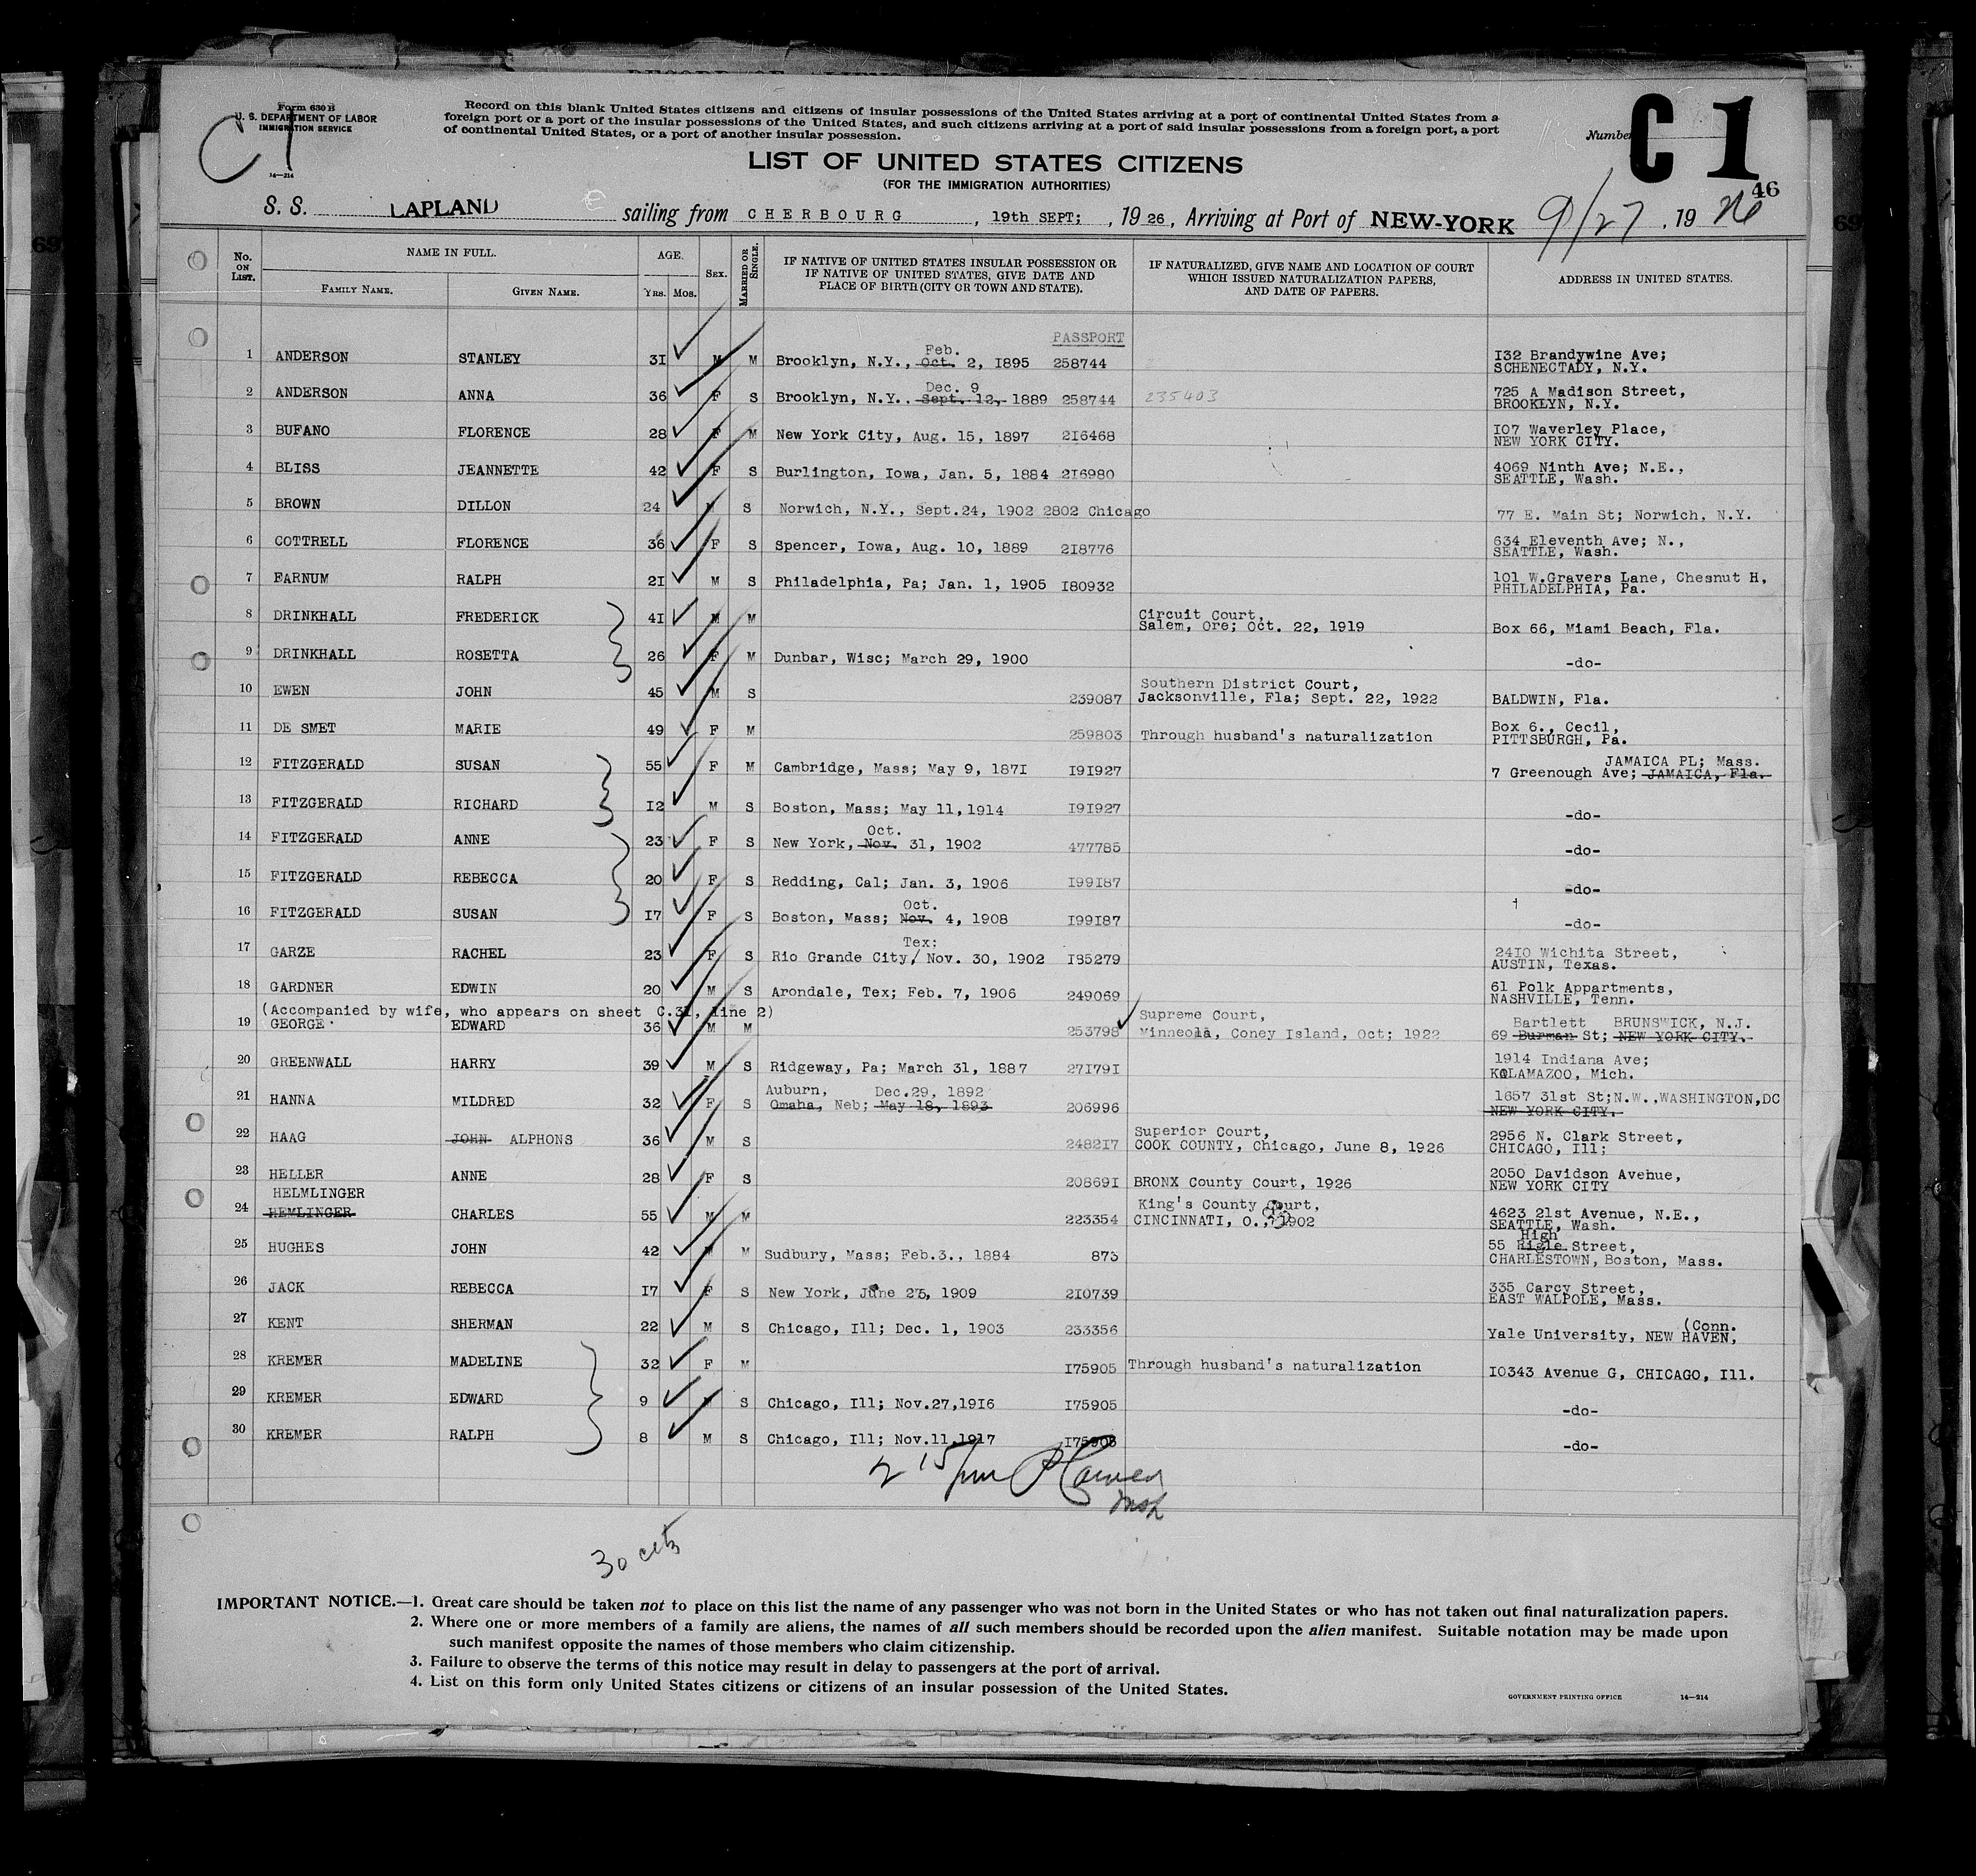 Form 630 B
U. S. DEPARTMENT OF LABOR
IMMIGRATION SERVICE
14—214
C 1
Record on this blank United States citizens and citizens of insular possessions of the United States arriving at a port of continental United States from a
foreign port or a port of the insular possessions of the United States, and such citizens arriving at a port of said insular possessions from a foreign port, a port
of continental United States, or a port of another insular possession.
Number C 1
46
LIST OF UNITED STATES CITIZENS
(FOR THE IMMIGRATION AUTHORITIES)
S. S. LAPLAND sailing from CHERBOURG, 19th SEPT;, 1926, Arriving at Port of NEW-YORK 9/27, 1926
No. ON LIST. NAME IN FULL. AGE. SEX. MARRIED OR SINGLE. IF NATIVE OF UNITED STATES INSULAR POSSESSION OR IF NATIVE OF UNITED STATES, GIVE DATE AND PLACE OF BIRTH (CITY OR TOWN AND STATE). IF NATURALIZED, GIVE NAME AND LOCATION OF COURT WHICH ISSUED NATURALIZATION PAPERS, AND DATE OF PAPERS. ADDRESS IN UNITED STATES.
FAMILY NAME. GIVEN NAME. YRS. MOS.
PASSPORT
1 ANDERSON STANLEY 31 M M Brooklyn, N.Y., Oct. Feb. 2, 1895 258744 132 Brandywine Ave; SCHENECTADY, N.Y.
2 ANDERSON ANNA 36 F S Brooklyn, N.Y. Sept. 12, Dec. 9 1889 258744 235403 725 A Madison Street, BROOKLYN, N.Y.
3 BUFANO FLORENCE 28 F M New York City, Aug. 15, 1897 216468 107 Waverley Place, NEW YORK CITY.
4 BLISS JEANNETTE 42 F S Burlington, Iowa, Jan. 5, 1884 216980 4069 Ninth Ave; N.E., SEATTLE, Wash.
5 BROWN DILLON 24 M S Norwich, N.Y., Sept.24, 1902 2802 Chicago 77 E. Main St; Norwich, N.Y.
6 COTTRELL FLORENCE 36 F S Spencer, Iowa, Aug. 10, 1889 218776 634 Eleventh Ave; N., SEATTLE, Wash.
7 FARNUM RALPH 21 M S Philadelphia, Pa; Jan. 1, 1905 180932 101 W.Gravers Lane, Chesnut H, PHILADELPHIA, Pa.
8 DRINKHALL FREDERICK 41 M M Circuit Court, Salem, Ore; Oct. 22, 1919 Box 66, Miami Beach, Fla.
9 DRINKHALL ROSETTA 26 F M Dunbar, Wisc; March 29, 1900 -do-
10 EWEN JOHN 45 M S 239087 Southern District Court, Jacksonville, Fla; Sept. 22, 1922 BALDWIN, Fla.
11 DE SMET MARIE 49 F M 259803 Through husband's naturalization Box 6., Cecil, PITTSBURGH, Pa.
12 FITZGERALD SUSAN 55 F M Cambridge, Mass; May 9, 1871 191927 7 Greenough Ave; JAMAICA, Fla. JAMAICA PL; Mass.
13 FITZGERALD RICHARD 12 M S Boston, Mass; May 11,1914 191927 -do-
14 FITZGERALD ANNE 23 F S New York, Nov. Oct. 31, 1902 477785 -do-
15 FITZGERALD REBECCA 20 F S Redding, Cal; Jan. 3, 1906 199187 -do-
16 FITZGERALD SUSAN 17 F S Boston, Mass; Nov. Oct. 4, 1908 199187 -do-
17 GARZE RACHEL 23 F S Rio Grande City/ Tex: Nov. 30, 1902 185279 2410 Wichita Street, AUSTIN, Texas.
18 GARDNER EDWIN 20 M S Arondale, Tex; Feb. 7, 1906 249069 61 Polk Appartments, NASHVILLE, Tenn.
(Accompanied by wife, who appears on sheet C.31, line 2)
19 GEORGE EDWARD 36 M M 253798 Supreme Court, Minneola, Coney Island, Oct; 1922 69 Burman Bartlett St; NEW YORK CITY. BRUNSWICK, N.J.
20 GREENWALL HARRY 39 M S Ridgeway, Pa; March 31, 1887 271791 1914 Indiana Ave; KALAMAZOO, Mich.
21 HANNA MILDRED 32 F S Omaha, Auburn, Neb; May 18, 1893 Dec.29, 1892 206996 1657 31st St;N.W.,WASHINGTON,DC NEW YORK CITY.
22 HAAG JOHN ALPHONS 36 M S 248217 Superior Court, COOK COUNTY, Chicago, June 8, 1926 2956 N. Clark Street, CHICAGO, Ill;
23 HELLER ANNE 28 F S 208691 BRONX County Court, 1926 2050 Davidson Avehue, NEW YORK CITY
24 HEMLINGER HELMLINGER CHARLES 55 M M 223354 King's County Court, CINCINNATI, O., 1902 4623 21st Avenue, N.E., SEATTLE, Wash.
25 HUGHES JOHN 42 M M Sudbury, Mass; Feb.3., 1884 873 55 Rigle High Street, CHARLESTOWN, Boston, Mass.
26 JACK REBECCA 17 F S New York, June 25, 1909 210739 335 Carcy Street, EAST WALPOLE, Mass.
27 KENT SHERMAN 22 M S Chicago, Ill; Dec. 1, 1903 233356 Yale University, NEW HAVEN, (Conn.
28 KREMER MADELINE 32 F M 175905 Through husband's naturalization 10343 Avenue G, CHICAGO, Ill.
29 KREMER EDWARD 9 M S Chicago, Ill; Nov.27,1916 175905 -do-
30 KREMER RALPH 8 M S Chicago, Ill; Nov.11,1917 175905 -do-
2 15/
30 cits
IMPORTANT NOTICE.—1. Great care should be taken not to place on this list the name of any passenger who was not born in the United States or who has not taken out final naturalization papers.
2. Where one or more members of a family are aliens, the names of all such members should be recorded upon the alien manifest. Suitable notation may be made upon
such manifest opposite the names of those members who claim citizenship.
3. Failure to observe the terms of this notice may result in delay to passengers at the port of arrival.
4. List on this form only United States citizens or citizens of an insular possession of the United States.
GOVERNMENT PRINTING OFFICE 14—214